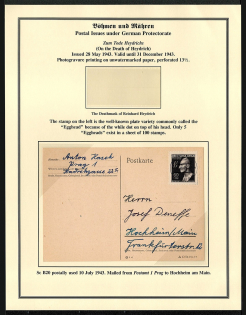 Böhmen und Mähren
Postal Issues under German Protectorate
Zum Tode Heydrichs
(On the Death of Heydrich)
Issued 28 May 1943. Valid until 31 December 1943.
Photogravure printing on unwatermarked paper, perforated 13½.
The Deathmask of Reinhard Heydrich
The stamp on the left is the well-known plate variety commonly called the
"Egghead" because of the white dot on top of his head. Only 5
"Eggheads" exist in a sheet of 100 stamps.
Anton
Prag 1
Postkarte
Herrn
Josef
Hochheim/Main
Sc B20 postally used 10 July 1943. Mailed from Postamt 1 Prag to Hochheim am Main.